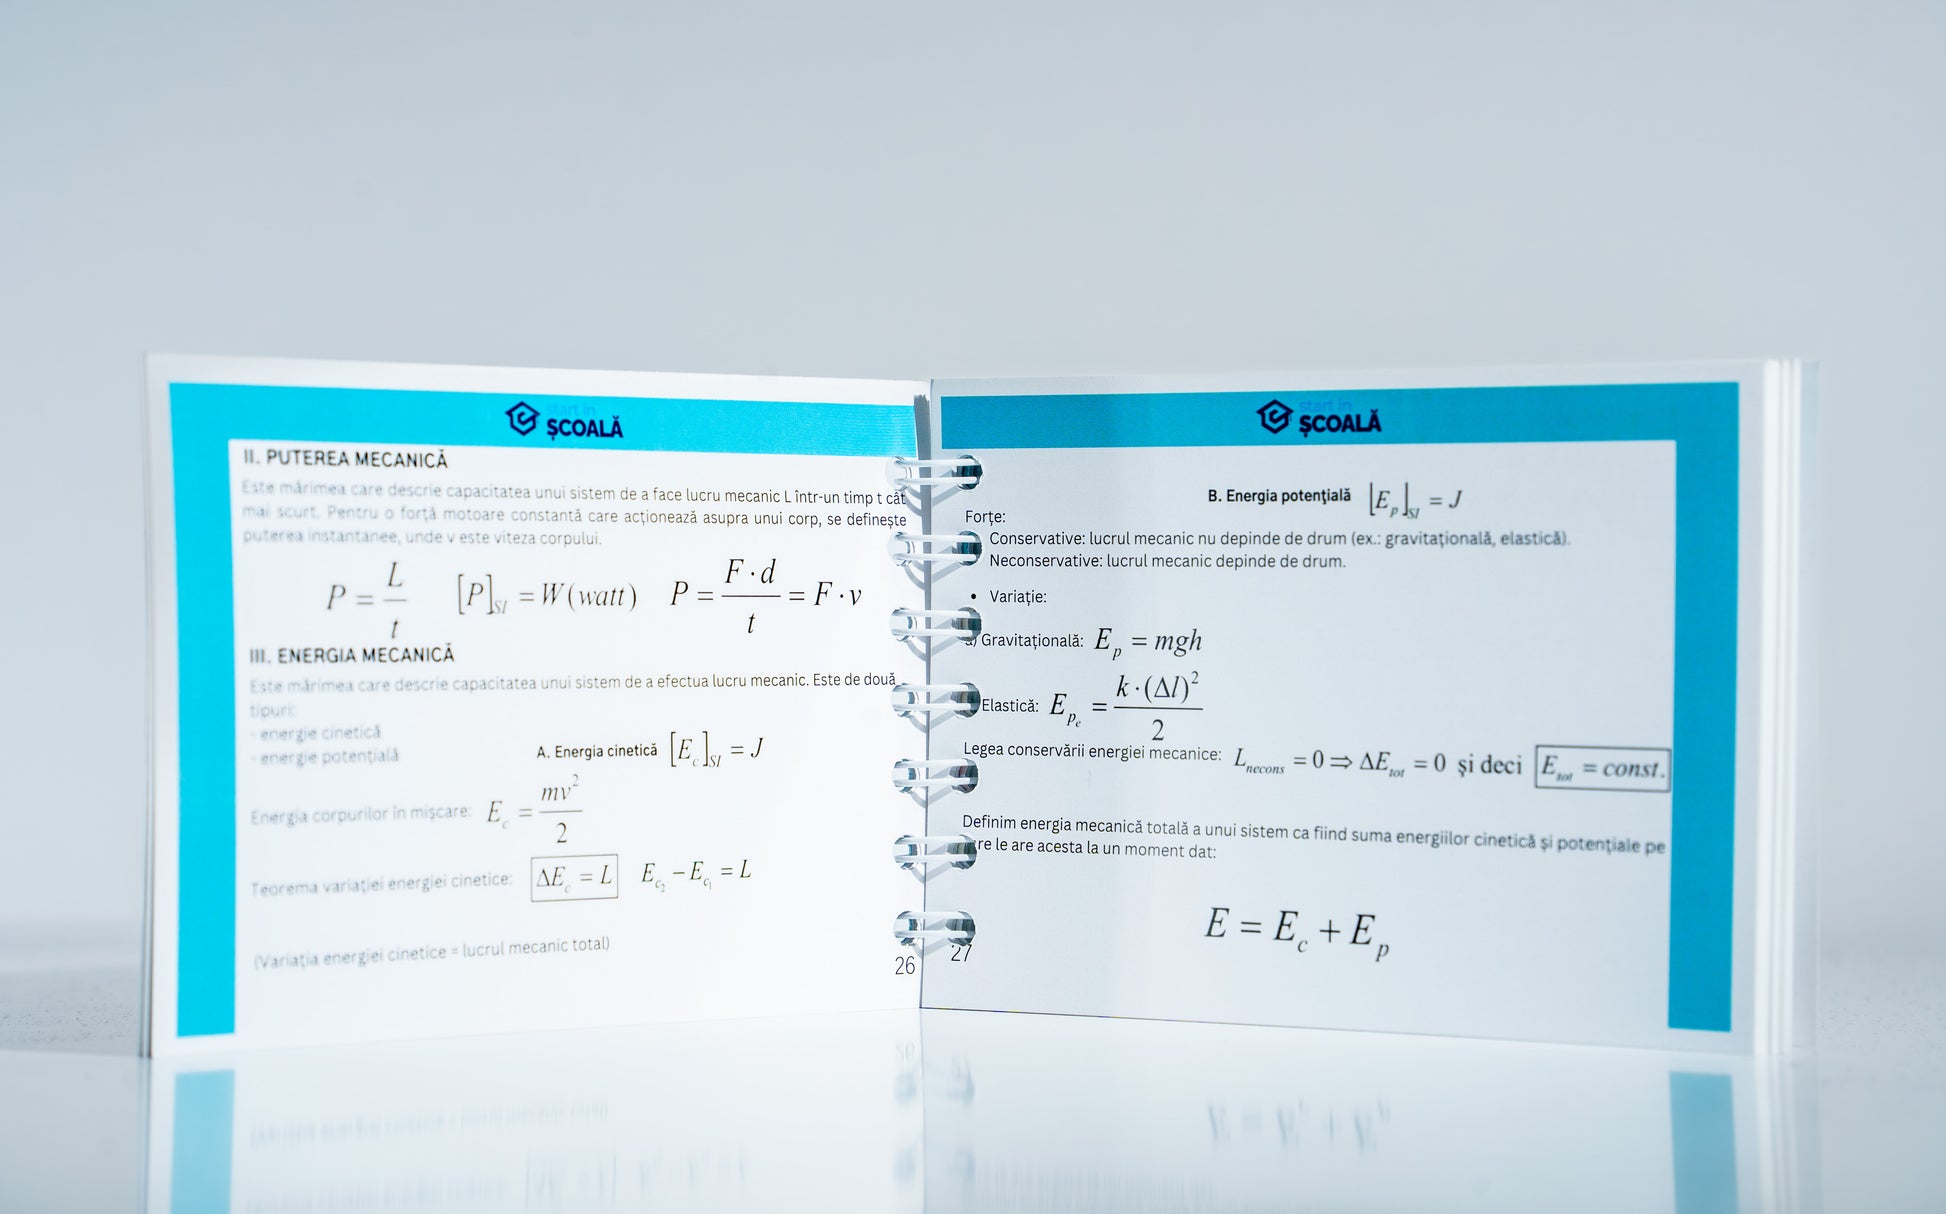 start in
ȘCOALĂ
II. PUTEREA MECANICĂ
Este mărimea care descrie capacitatea unui sistem de a face lucru mecanic L într-un timp t cât
mai scurt. Pentru o forță motoare constantă care acționează asupra unui corp, se definește
puterea instantanee, unde v este viteza corpului.
P = L/t [P]_SI = W(watt) P = F·d/t = F·v
III. ENERGIA MECANICĂ
Este mărimea care descrie capacitatea unui sistem de a efectua lucru mecanic. Este de două
tipuri:
- energie cinetică
- energie potențială
A. Energia cinetică [E_c]_SI = J
Energia corpurilor în mișcare: E_c = mv²/2
Teorema variației energiei cinetice: ΔE_c = L E_c₂ − E_c₁ = L
(Variația energiei cinetice = lucrul mecanic total)
26
start in
ȘCOALĂ
B. Energia potențială [E_p]_SI = J
Forțe:
Conservative: lucrul mecanic nu depinde de drum (ex.: gravitațională, elastică).
Neconservative: lucrul mecanic depinde de drum.
• Variație:
a) Gravitațională: E_p = mgh
Elastică: E_pe = k·(Δl)²/2
Legea conservării energiei mecanice: L_necons = 0 ⇒ ΔE_tot = 0 și deci E_tot = const.
Definim energia mecanică totală a unui sistem ca fiind suma energiilor cinetică și potențiale pe
re le are acesta la un moment dat:
E = E_c + E_p
27